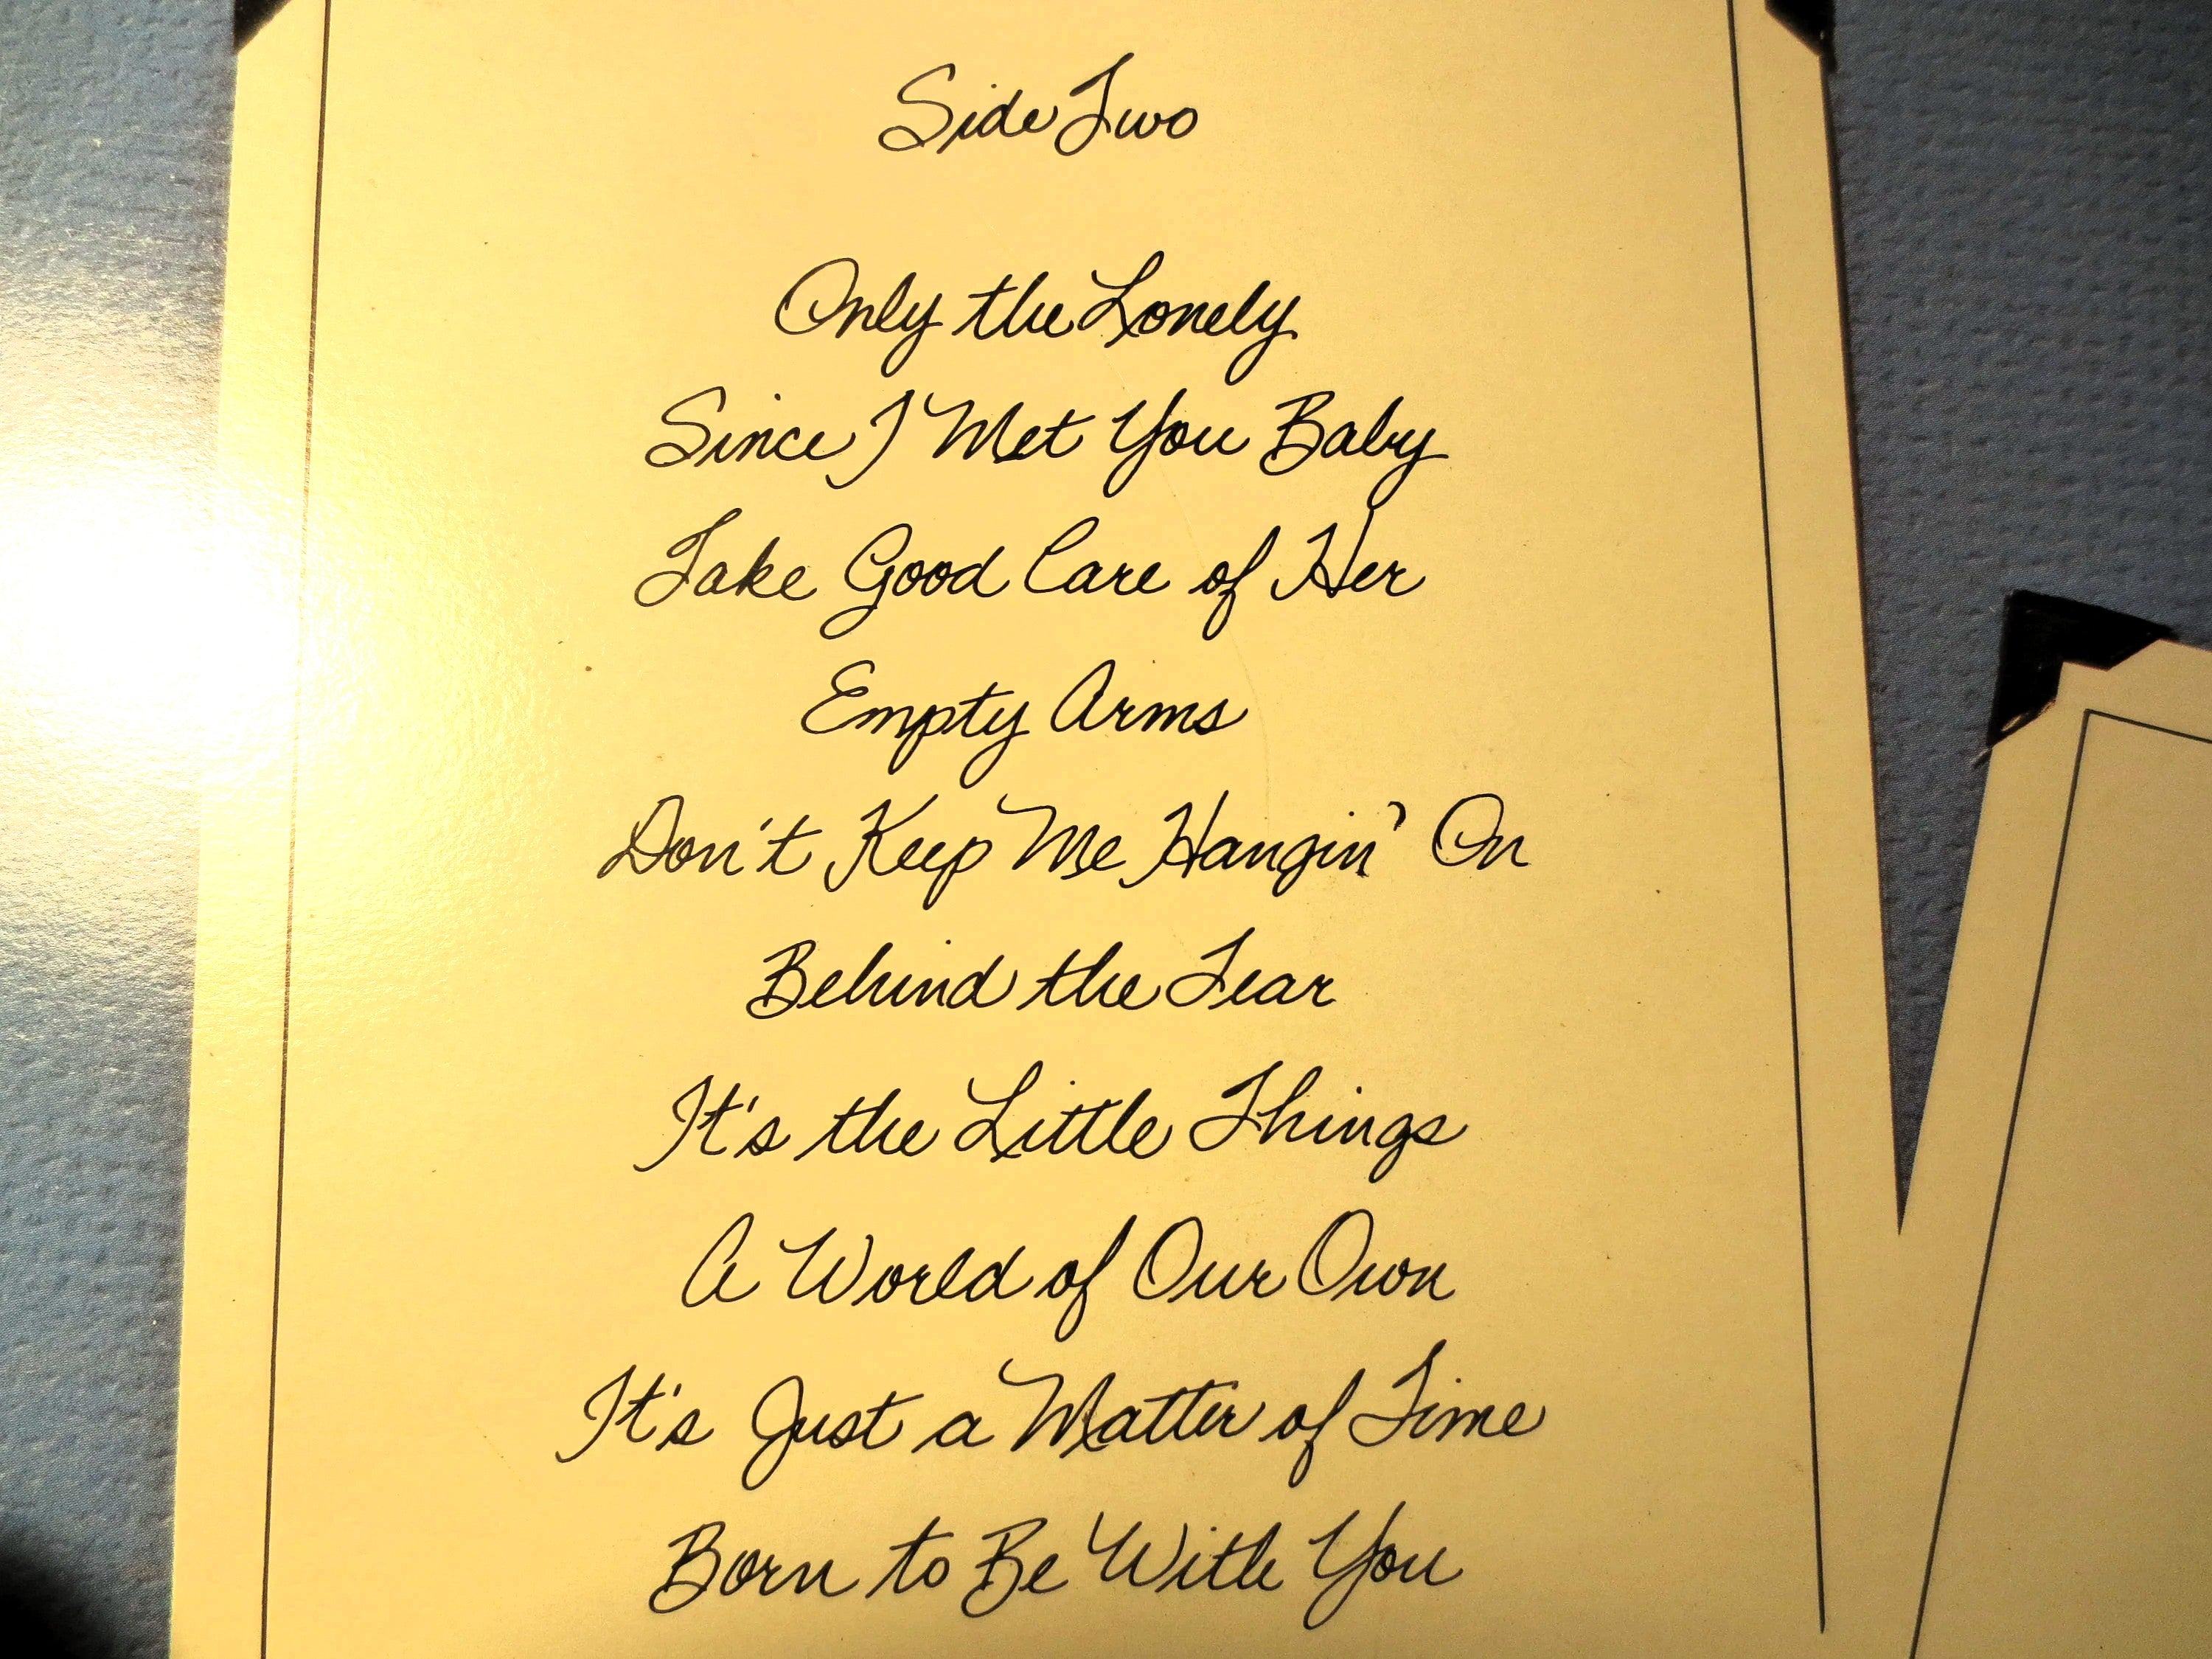 Side Two
Only the Lonely
Since I Met You Baby
Take Good Care of Her
Empty Arms
Don't Keep Me Hangin' On
Behind the Tear
It's the Little Things
A World of Our Own
It's Just a Matter of Time
Born to Be With You